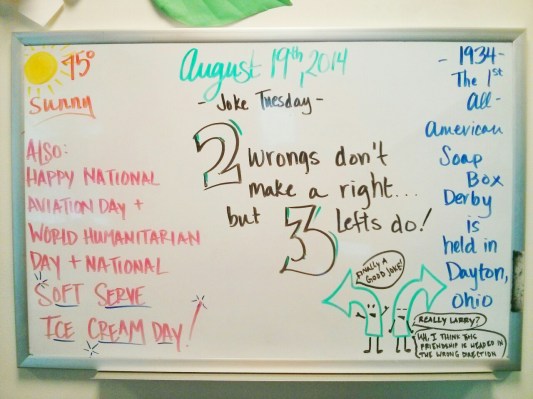 75°
Sunny
August 19th, 2014
- Joke Tuesday -
2 wrongs don't
make a right...
but 3 lefts do!
ALSO:
HAPPY NATIONAL
AVIATION DAY +
WORLD HUMANITARIAN
DAY + NATIONAL
SOFT SERVE
ICE CREAM DAY!
- 1934 -
The 1st
All-
American
Soap
Box
Derby
is
held in
Dayton,
Ohio
FINALLY A
GOOD JOKE!
REALLY LARRY?
I THINK THIS
FRIENDSHIP IS HEADED IN
THE WRONG DIRECTION